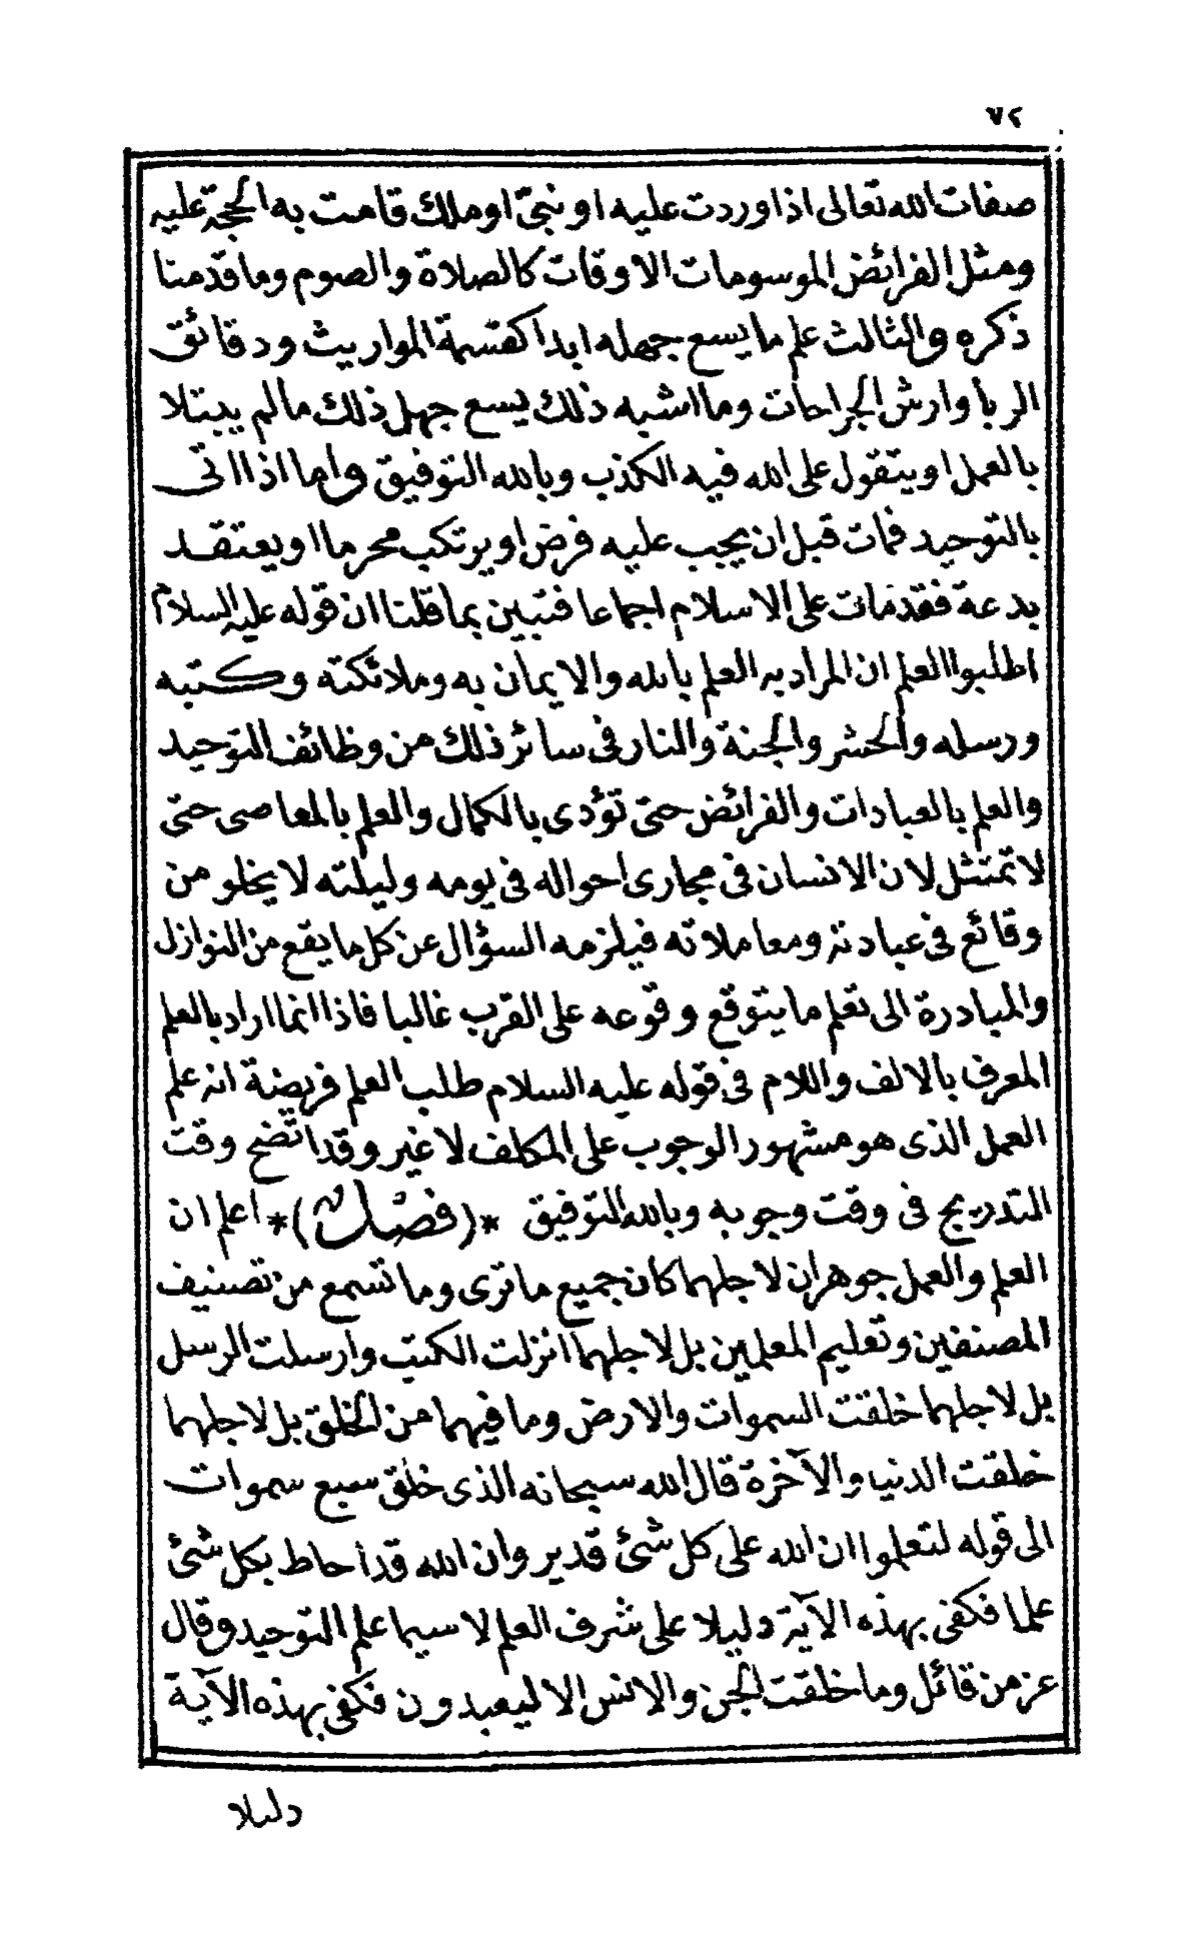 ٧٢
صفات الله تعالى اذا وردت عليه او نبىّ او ملك قامت به الحجة عليه
ومثل الفرائض الموسومات الاوقات كالصلاة والصوم وما قدمنا
ذكره والثالث علم ما يسع جهله ابدا كقسمة المواريث ودقائق
الربا وارش الجراحات وما اشبه ذلك يسع جهل ذلك ما لم يبتلا
بالعمل او يتقول على الله فيه الكذب وبالله التوفيق واما اذا اتى
بالتوحيد فمات قبل ان يجب عليه فرض او يرتكب محرما او يعتقد
بدعة فقد مات على الاسلام اجماعا فتبين بما قلنا ان قوله عليه السلام
اطلبوا العلم ان المراد به العلم بالله والايمان به وملائكته وكتبه
ورسله والحشر والجنة والنار فى سائر ذلك من وظائف التوحيد
والعلم بالعبادات والفرائض حتى تؤدى بالكمال والعلم بالمعاصى حتى
لا تمتثل لان الانسان فى مجارى احواله فى يومه وليلته لا يخلو من
وقائع فى عبادته ومعاملاته فيلزمه السؤال عن كل ما يقع من النوازل
والمبادرة الى تعلم ما يتوقع وقوعه على القرب غالبا فاذا انما اراد بالعلم
المعرف بالالف واللام فى قوله عليه السلام طلب العلم فريضة انه علم
العمل الذى هو مشهور الوجوب على المكلف لا غير وقد اتضح وقت
التدريج فى وقت وجوبه وبالله التوفيق *(فصل)* اعلم ان
العلم والعمل جوهران لاجلهما كان جميع ما ترى وما تسمع من تصنيف
المصنفين وتعليم المعلمين بل لاجلهما انزلت الكتب وارسلت الرسل
بل لاجلهما خلقت السموات والارض وما فيهما من الخلق بل لاجلهما
خلقت الدنيا والآخرة قال الله سبحانه الذى خلق سبع سموات
الى قوله لتعلموا ان الله على كل شئ قدير وان الله قد احاط بكل شئ
علما فكفى بهذه الآية دليلا على شرف العلم لا سيما علم التوحيد وقال
عز من قائل وما خلقت الجن والانس الا ليعبدون فكفى بهذه الآية
دليلا